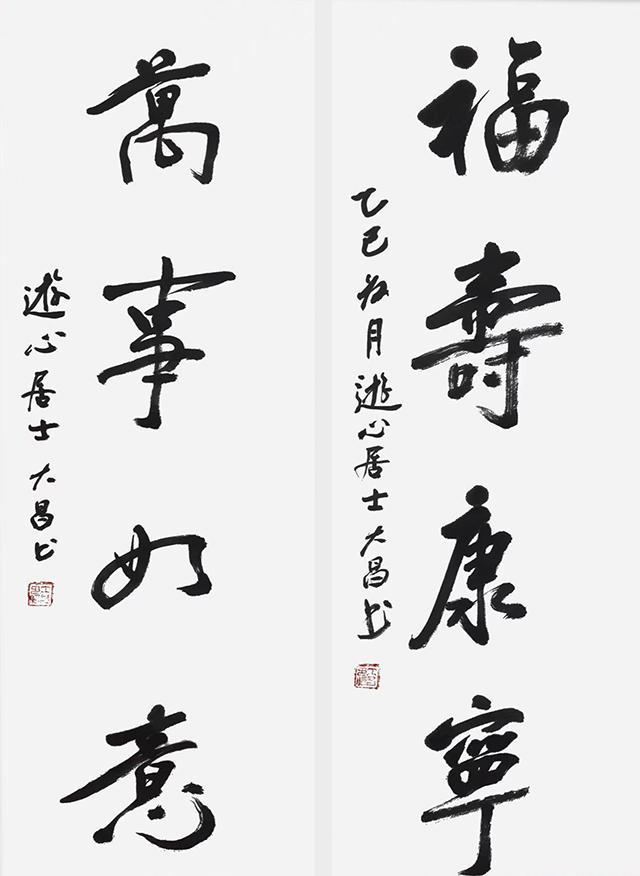 福壽康寧
乙巳荷月遊心居士大昌书
萬事如意
遊心居士大昌书